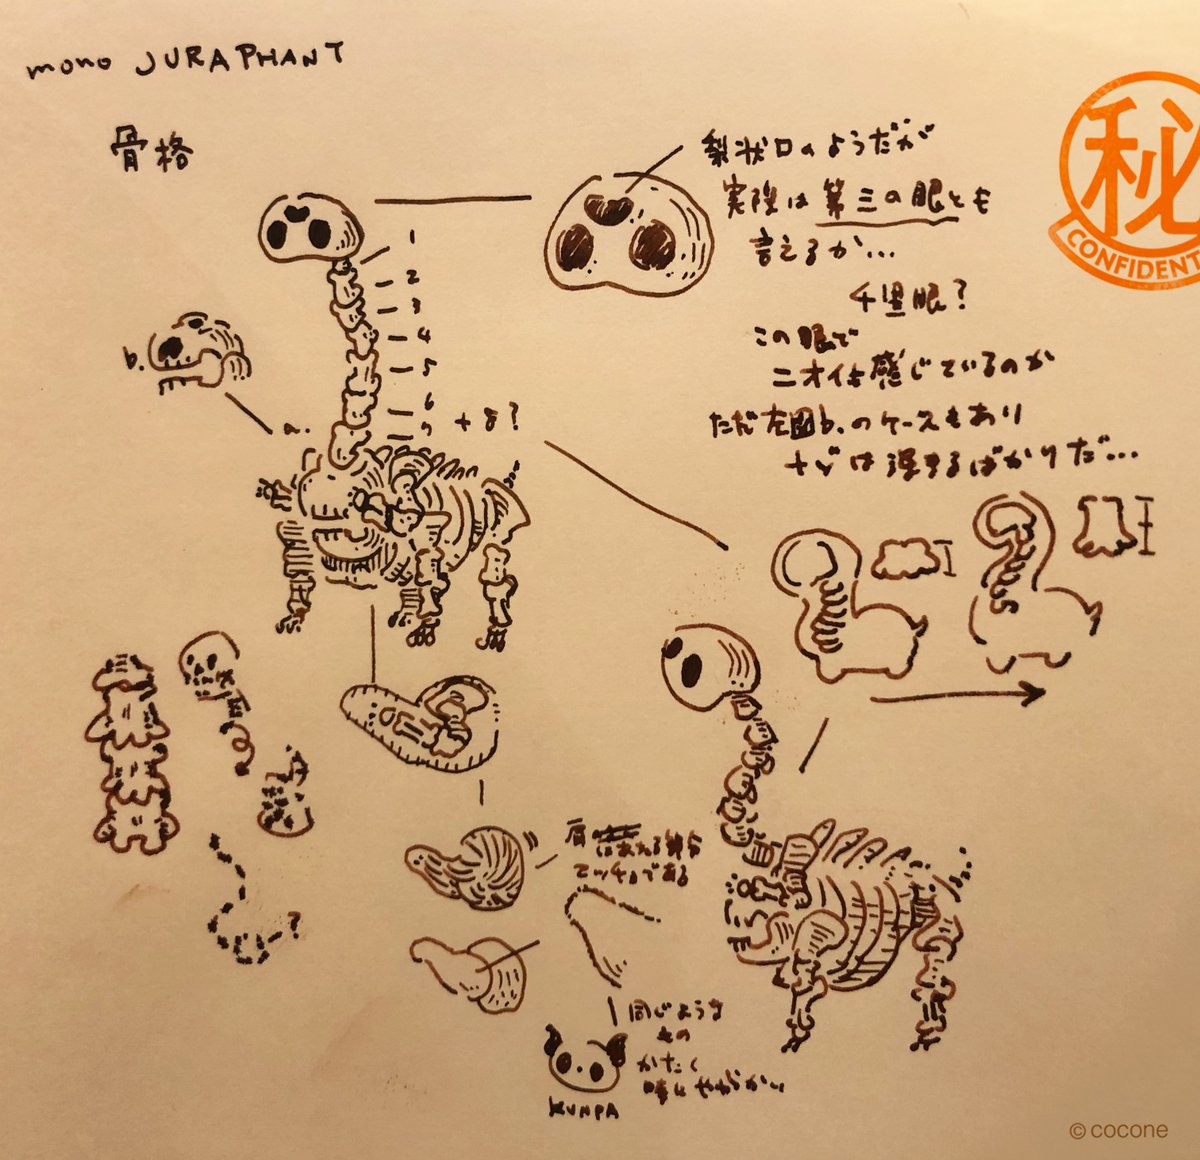 mono JURAPHANT
骨格
秘
CONFIDENT
梨状口のようだが
実際は第三の眼とも
言えるか...
千里眼?
この眼で
ニオイも感じているのか
ただ左図b.のケースもあり
ナゾは深まるばかりだ...
1
2
3
4
5
6
7 +α?
b.
a.
?
肩
である
同じような
もの
かたく
時にやわらかい
KUNPA
© cocone